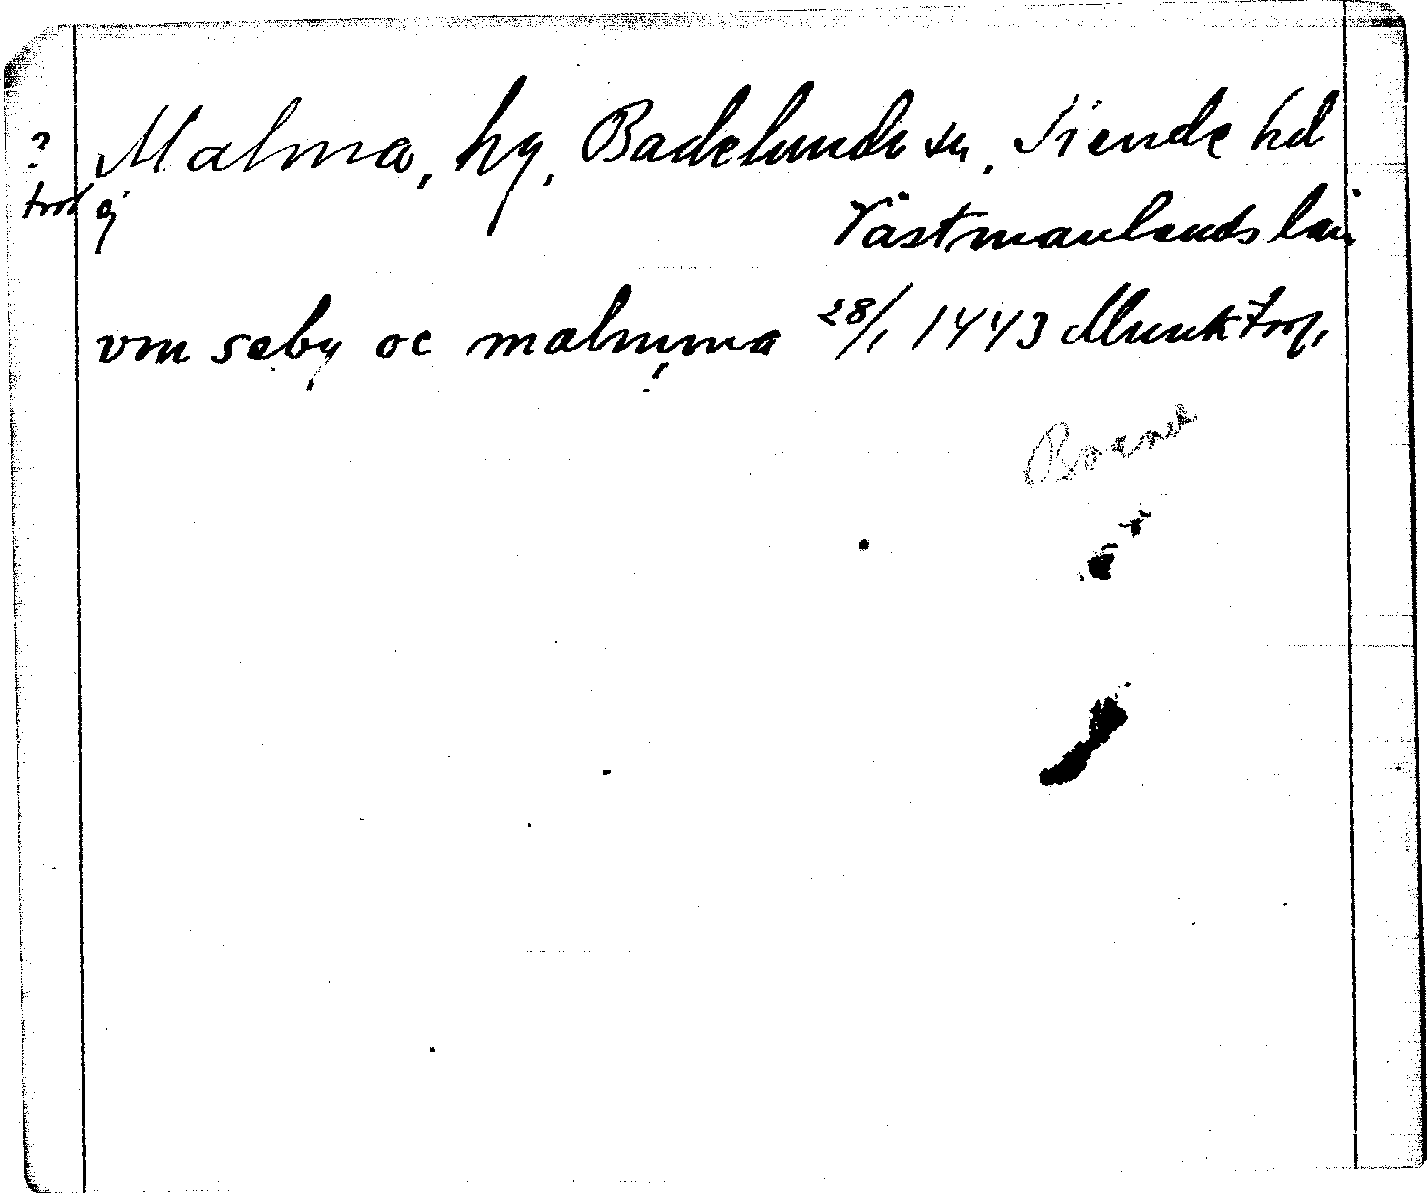 ? Malma, by, Badelunda sn, Siende hd
trol ej
Västmanlands län
vm seby oc malmma 28/1 1443 Munktorp,